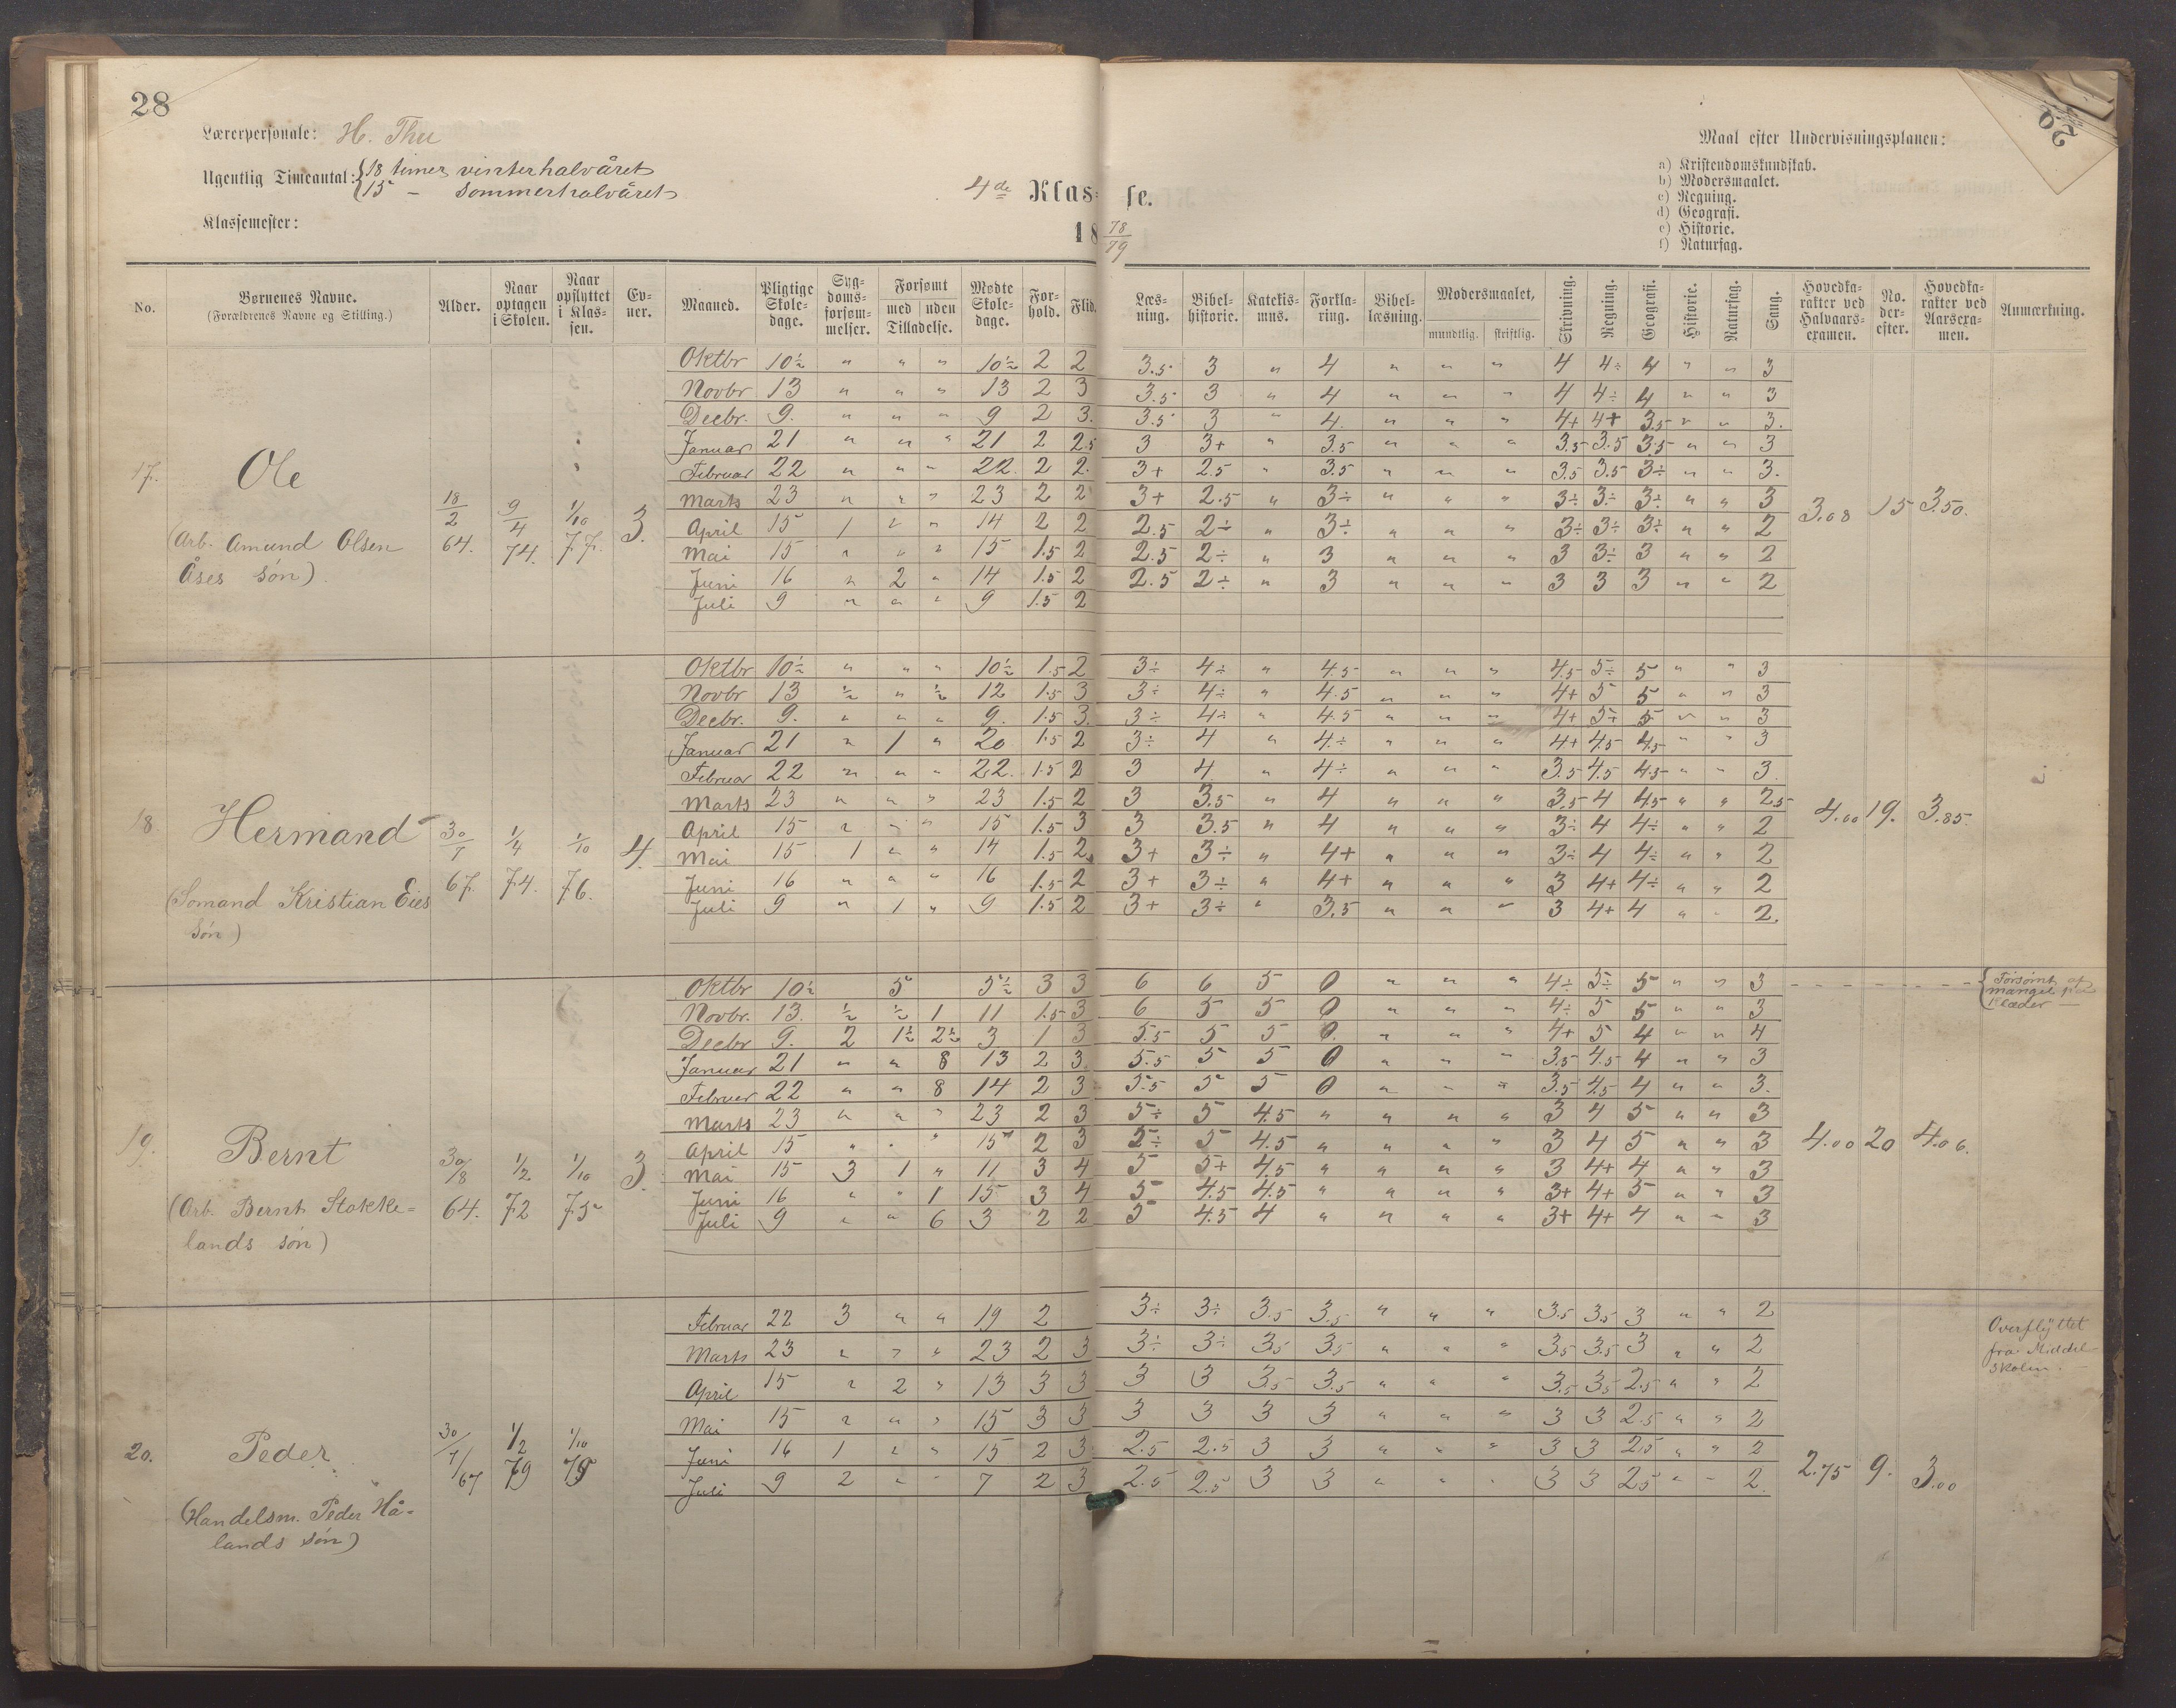 28
Lærerpersonale: H. Thu
Ugentlig Timeantal: {18 timer vinterhalvåret
15 – sommerhalvåret
Klassemester:
4de Klas= se.
18 78/79
28
Maal efter Undervisningsplanen:
a) Kristendomskundskab.
b) Modersmaalet.
c) Regning.
d) Geografi.
e) Historie.
f) Naturfag.
No. | Børnenes Navne. (Forældrenes Navne og Stilling.) | Alder. | Naar optagen i Skolen. | Naar opflyttet i Klassen. | Evner. | Maaned. | Pligtige Skoledage. | Sygdomsforsømmelser. | Forsømt med uden Tilladelse. | Mødte Skoledage. | Forhold. | Flid. | Læsning. | Bibelhistorie. | Katekismus. | Forklaring. | Bibellæsning. | Modersmaalet, mundtlig. skriftlig. | Skrivning. | Regning. | Geografi. | Historie. | Naturfag. | Sang. | Hovedkarakter ved Halvaarsexamen. | No. derefter. | Hovedkarakter ved Aarsexamen. | Anmærkning.
17. Ole
(Arb. Amund Olsen
Åses søn).
18/2 64. 9/4 74. 1/10 77. 3.
Oktbr 10½ " " " 10½ 2 2 3.5 3 " 4 " " " 4 4÷ 4 " " 3
Novbr 13 " " " 13 2 3 3.5 3 " 4 " " " 4 4÷ 4 " " 3
Decbr. 9. " " " 9 2 3. 3.5 3 " 4. " " " 4+ 4+ 3.5 " " 3.
Januar 21 " " " 21 2 2.5 3 3+ " 3.5 " " " 3.5 3.5 3.5 " " 3
Februar 22 " " " 22. 2 2. 3+ 2.5 " 3.5 " " " 3.5 3.5 3÷ " " 3.
Marts 23 " " " 23 2 2 3+ 2.5 " 3÷ " " " 3÷ 3÷ 3÷ " " 3
April 15 1 " " 14 2 2 2.5 2÷ " 3÷ " " " 3÷ 3÷ 3÷ " " 2
Mai 15 " " " 15 1.5 2 2.5 2÷ " 3 " " " 3 3÷ 3 " " 2
Juni 16 " 2 " 14 1.5 2 2.5 2÷ " 3 " " " 3 3 3 " " 2
Juli 9 " " " 9 1.5 2
3.08 15 3.50.
18. Hermand
(Sømand Kristian Eies
søn)
67. 1/4 74. 1/10 76. 4.
Oktbr 10½ " " " 10½ 1.5 2 3÷ 4÷ " 4.5 " " " 4.5 5÷ 5 " " 3
Novbr 13 ½ " ½ 12 1.5 3 3÷ 4÷ " 4.5 " " " 4+ 5 5 " " 3
Decbr. 9. " " " 9. 1.5 3. 3÷ 4÷ " 4.5 " " " 4+ 5+ 5 " " 3
Januar 21 " 1 " 20 1.5 2 3÷ 4 " 4÷ " " " 4+ 4.5 4.5 " " 3
Februar 22 " " " 22. 1.5 2 3 4 " 4÷ " " " 3.5 4.5 4.5 " " 3.
Marts 23 " " " 23 1.5 2 3 3.5 " 4 " " " 3.5 4 4.5 " " 2.5
April 15 " " " 15 1.5 3 3 3.5 " 4 " " " 3÷ 4 4÷ " " 2
Mai 15 1 " " 14 1.5 2. 3+ 3÷ " 4+ " " " 3÷ 4 4÷ " " 2
Juni 16 " " " 16 1.5 2 3+ 3÷ " 4+ " " " 3 4+ 4÷ " " 2
Juli 9 " 1 " 9 1.5 2 3+ 3÷ " 3.5 " " " 3 4+ 4 " " 2.
4.00 19. 3.85.
19. Bernt
(Arb. Bernt Stokke=
lands søn)
30/8 64. 1/2 72 1/10 75 3.
Oktbr 10½ 5 5½ 3 3 6 6 5 0 " " " 4÷ 5÷ 5 " " 3
Novbr. 13. ½ ½ 1 11 1.5 3 6 5 5 0 " " " 4÷ 5 5 " " 3
Decbr 9. 2 1½ 2½ 3 1 3 5.5 5 5 0. " " " 4+ 5 4 " " 4
Januar 21 " " 8 13 2 3. 5.5 5 5 0 " " " 3.5 4.5 4 " " 3
Februar 22 " " 8 14 2 3 5.5 5 5 0 " " " 3.5 4.5 4 " " 3.
Marts 23 " " " 23 2 3 5÷ 5 4.5 " " " " 3 4 5 " " 3
April 15 " " " 15 2 3 5÷ 5 4.5 " " " " 3 4 5 " " 3
Mai 15 3 1 " 11 3 4 5 5+ 4.5 " " " " 3 4+ 4 " " 3
Juni 16 " " 1 15 3 4 5 4.5 4.5 " " " " 3+ 4+ 5 " " 3
Juli 9 " " 6 3 2 2 5 4.5 4 " " " " 3+ 4+ 4 " " 3
4.00 20 4.06.
{Forsømt af
mangel på
klæder —
20. Peder
(Handelsm. Peder Hå=
lands søn)
67 1/2 79 1/10
Februar 22 3 " " 19 2 3÷ 3÷ 3.5 3.5 " " " 3.5 3.5 3 " " 2
Marts 23 " " " 23 2 3 3÷ 3÷ 3.5 3.5 " " " 3.5 3.5 3 " " 2
April 15 " 2 " 13 3 3 3 3 3.5 3.5 " " " 3.5 3.5 2.5 " " 2
Mai 15 " " " 15 3 3 3 3 3 3 " " " 3 3 2.5 " " 2
Juni 16 1 " " 15 2 3 2.5 2.5 3 3 " " " 3 3 2.5 " " 2
Juli 9 2 " " 7 2 3 2.5 2.5 3 3 " " " 3 3 2.5 " " 2.
2.75 9. 3.00
Overflyttet
fra Middel-
skolen. —